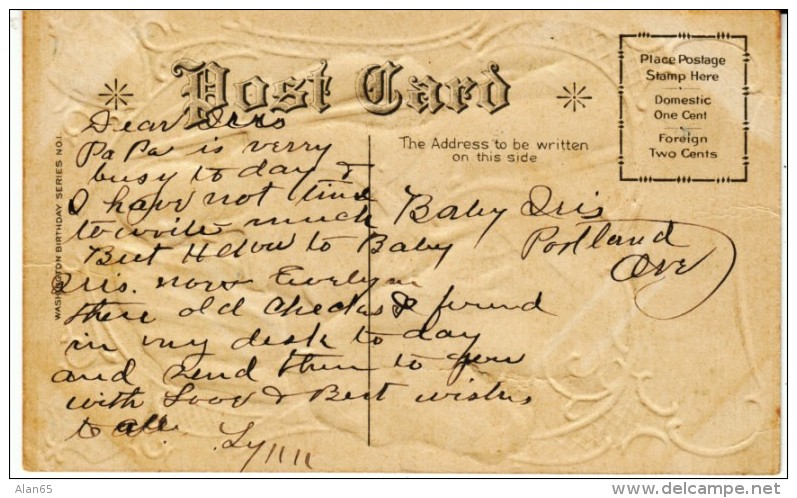 Post Card
Place Postage
Stamp Here
Domestic
One Cent
Foreign
Two Cents
The Address to be written
on this side
WASHINGTON BIRTHDAY SERIES NO.1.
Dear Iris
PaPa is verry
busy to day &
I have not time
to write much
But to Baby
Iris. now Evelyn
these old checks I found
in my desk to day
and send them to you
with Love & Best wishes
to all.
Baby Iris
Portland
Ore
Alan65
delcampe.net